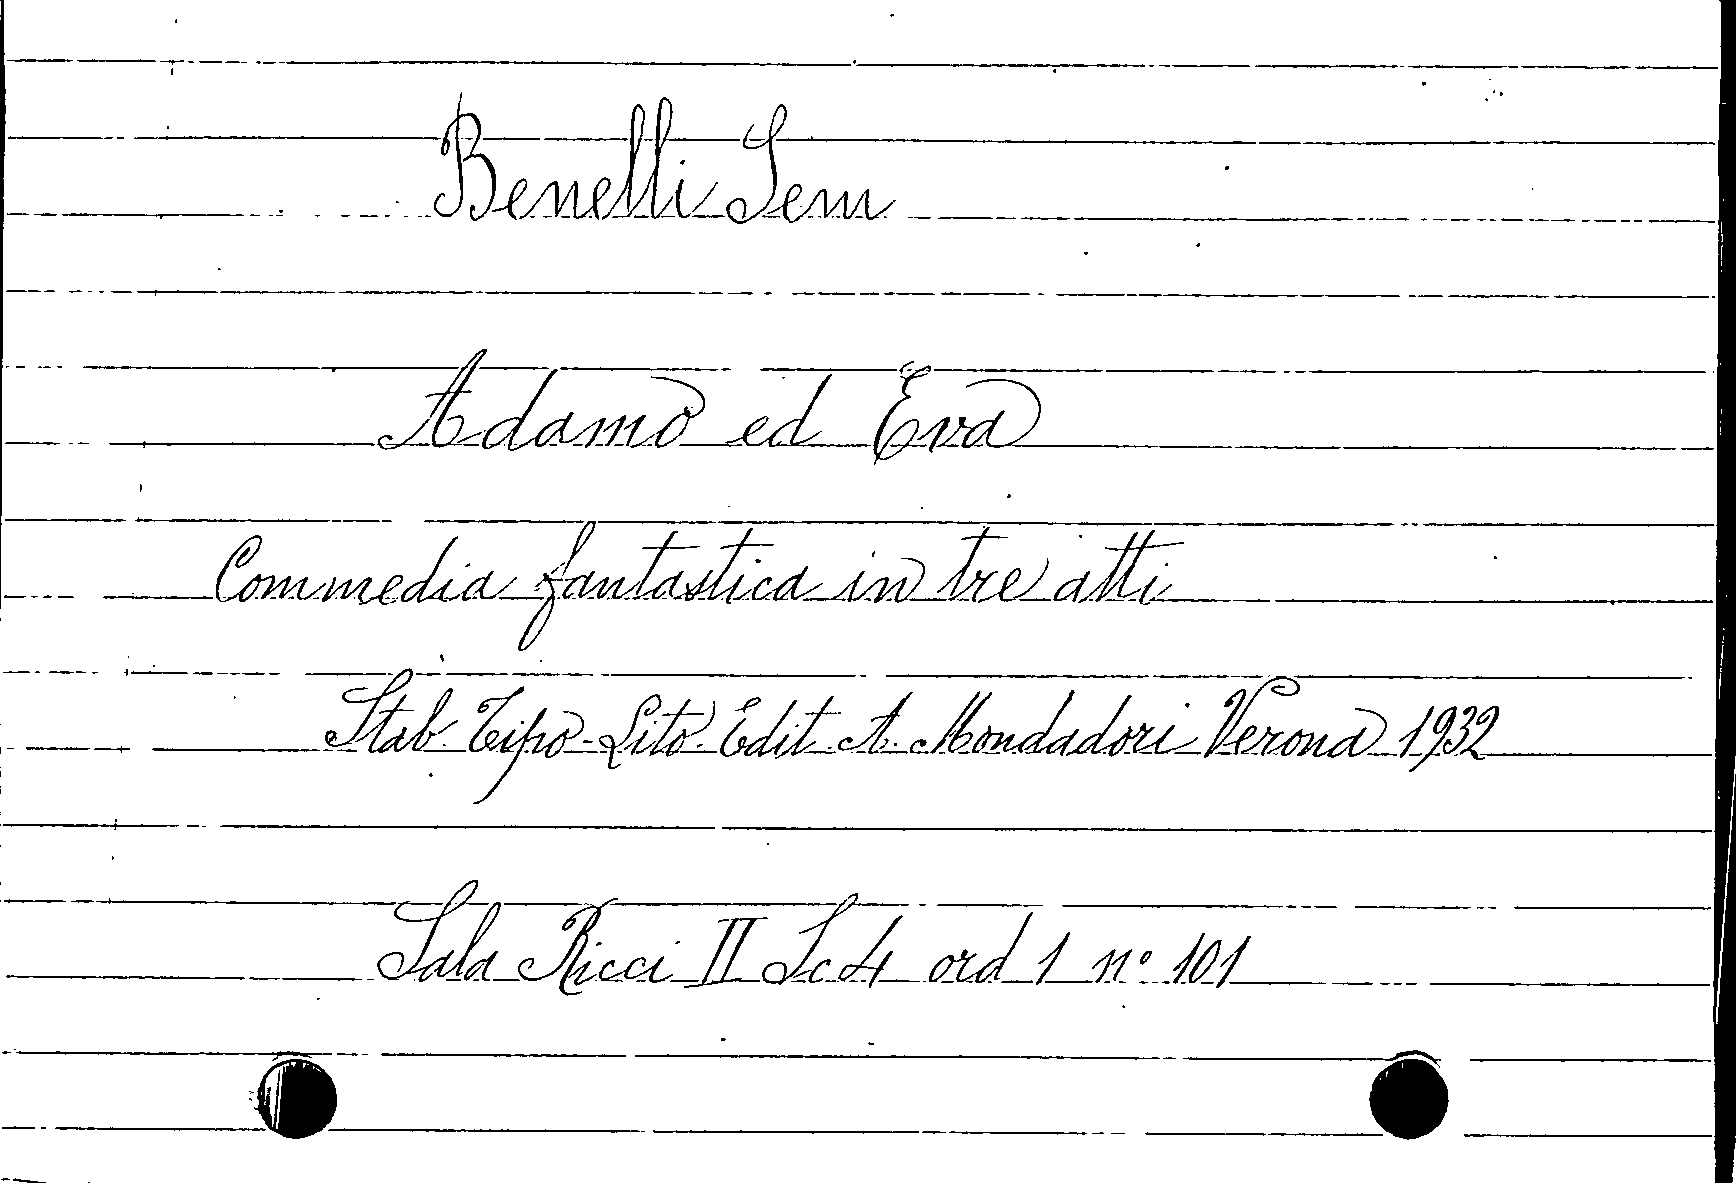 Benelli Sem
Adamo ed Eva
Commedia fantastica in tre atti
Stab. Tipo-Lito. Edit. A. Mondadori Verona 1932
Sala Ricci II Sc 4 ord 1 n° 101